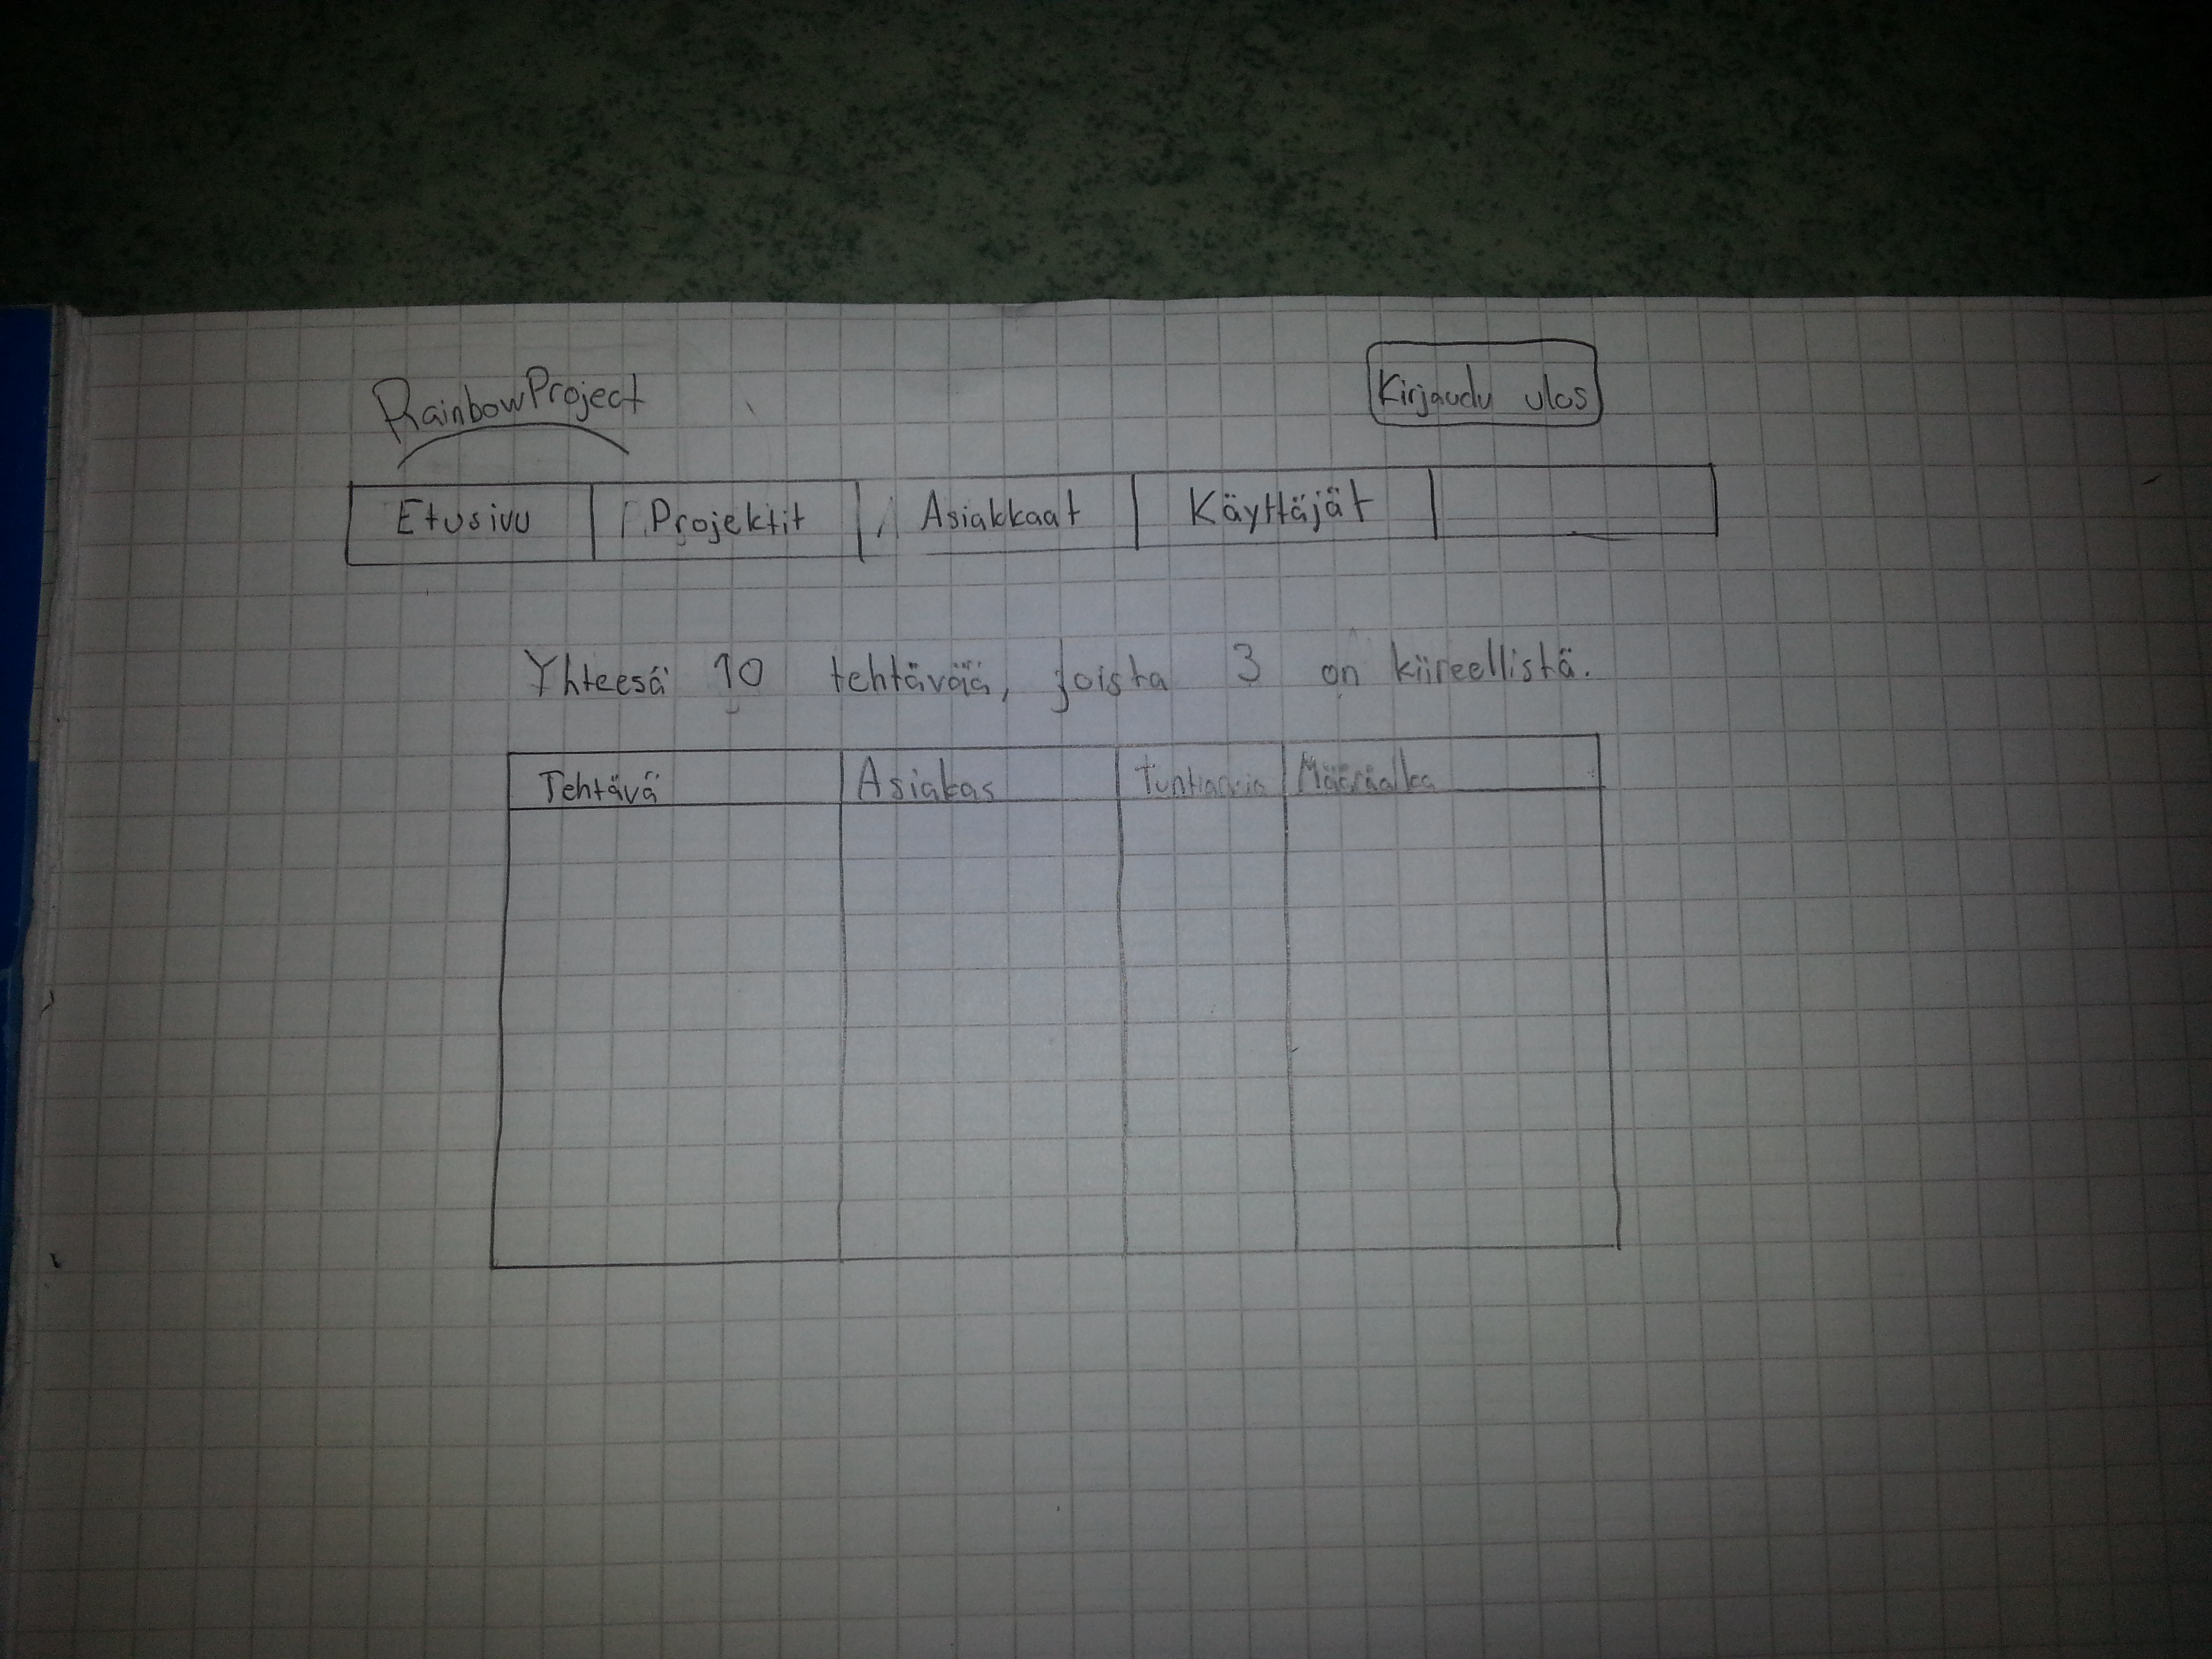 RainbowProject Kirjaudu ulos
Etusivu Projektit Asiakkaat Käyttäjät
Yhteesä 10 tehtävää, joista 3 on kiireellistä.
Tehtävä Asiakas Tuntiarvio Määräaika